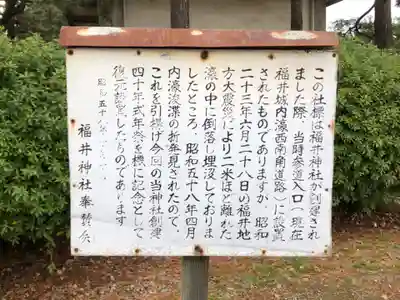 この社標は福井神社が創建され
ました際、当時参道入口(現在
福井城内濠西南角道路)に設置
されたものでありますが、昭和
二十三年六月二十八日の福井地
方大震災により二米ほど離れた
濠の中に倒落し埋没しておりま
したところ、昭和五十八年四月
内濠浚渫の折発見されたので、
これを引揚げ今回の当神社創建
四十年式年祭を機に記念として
復元
したものであります
昭和五十八年
福井神社奉賛会